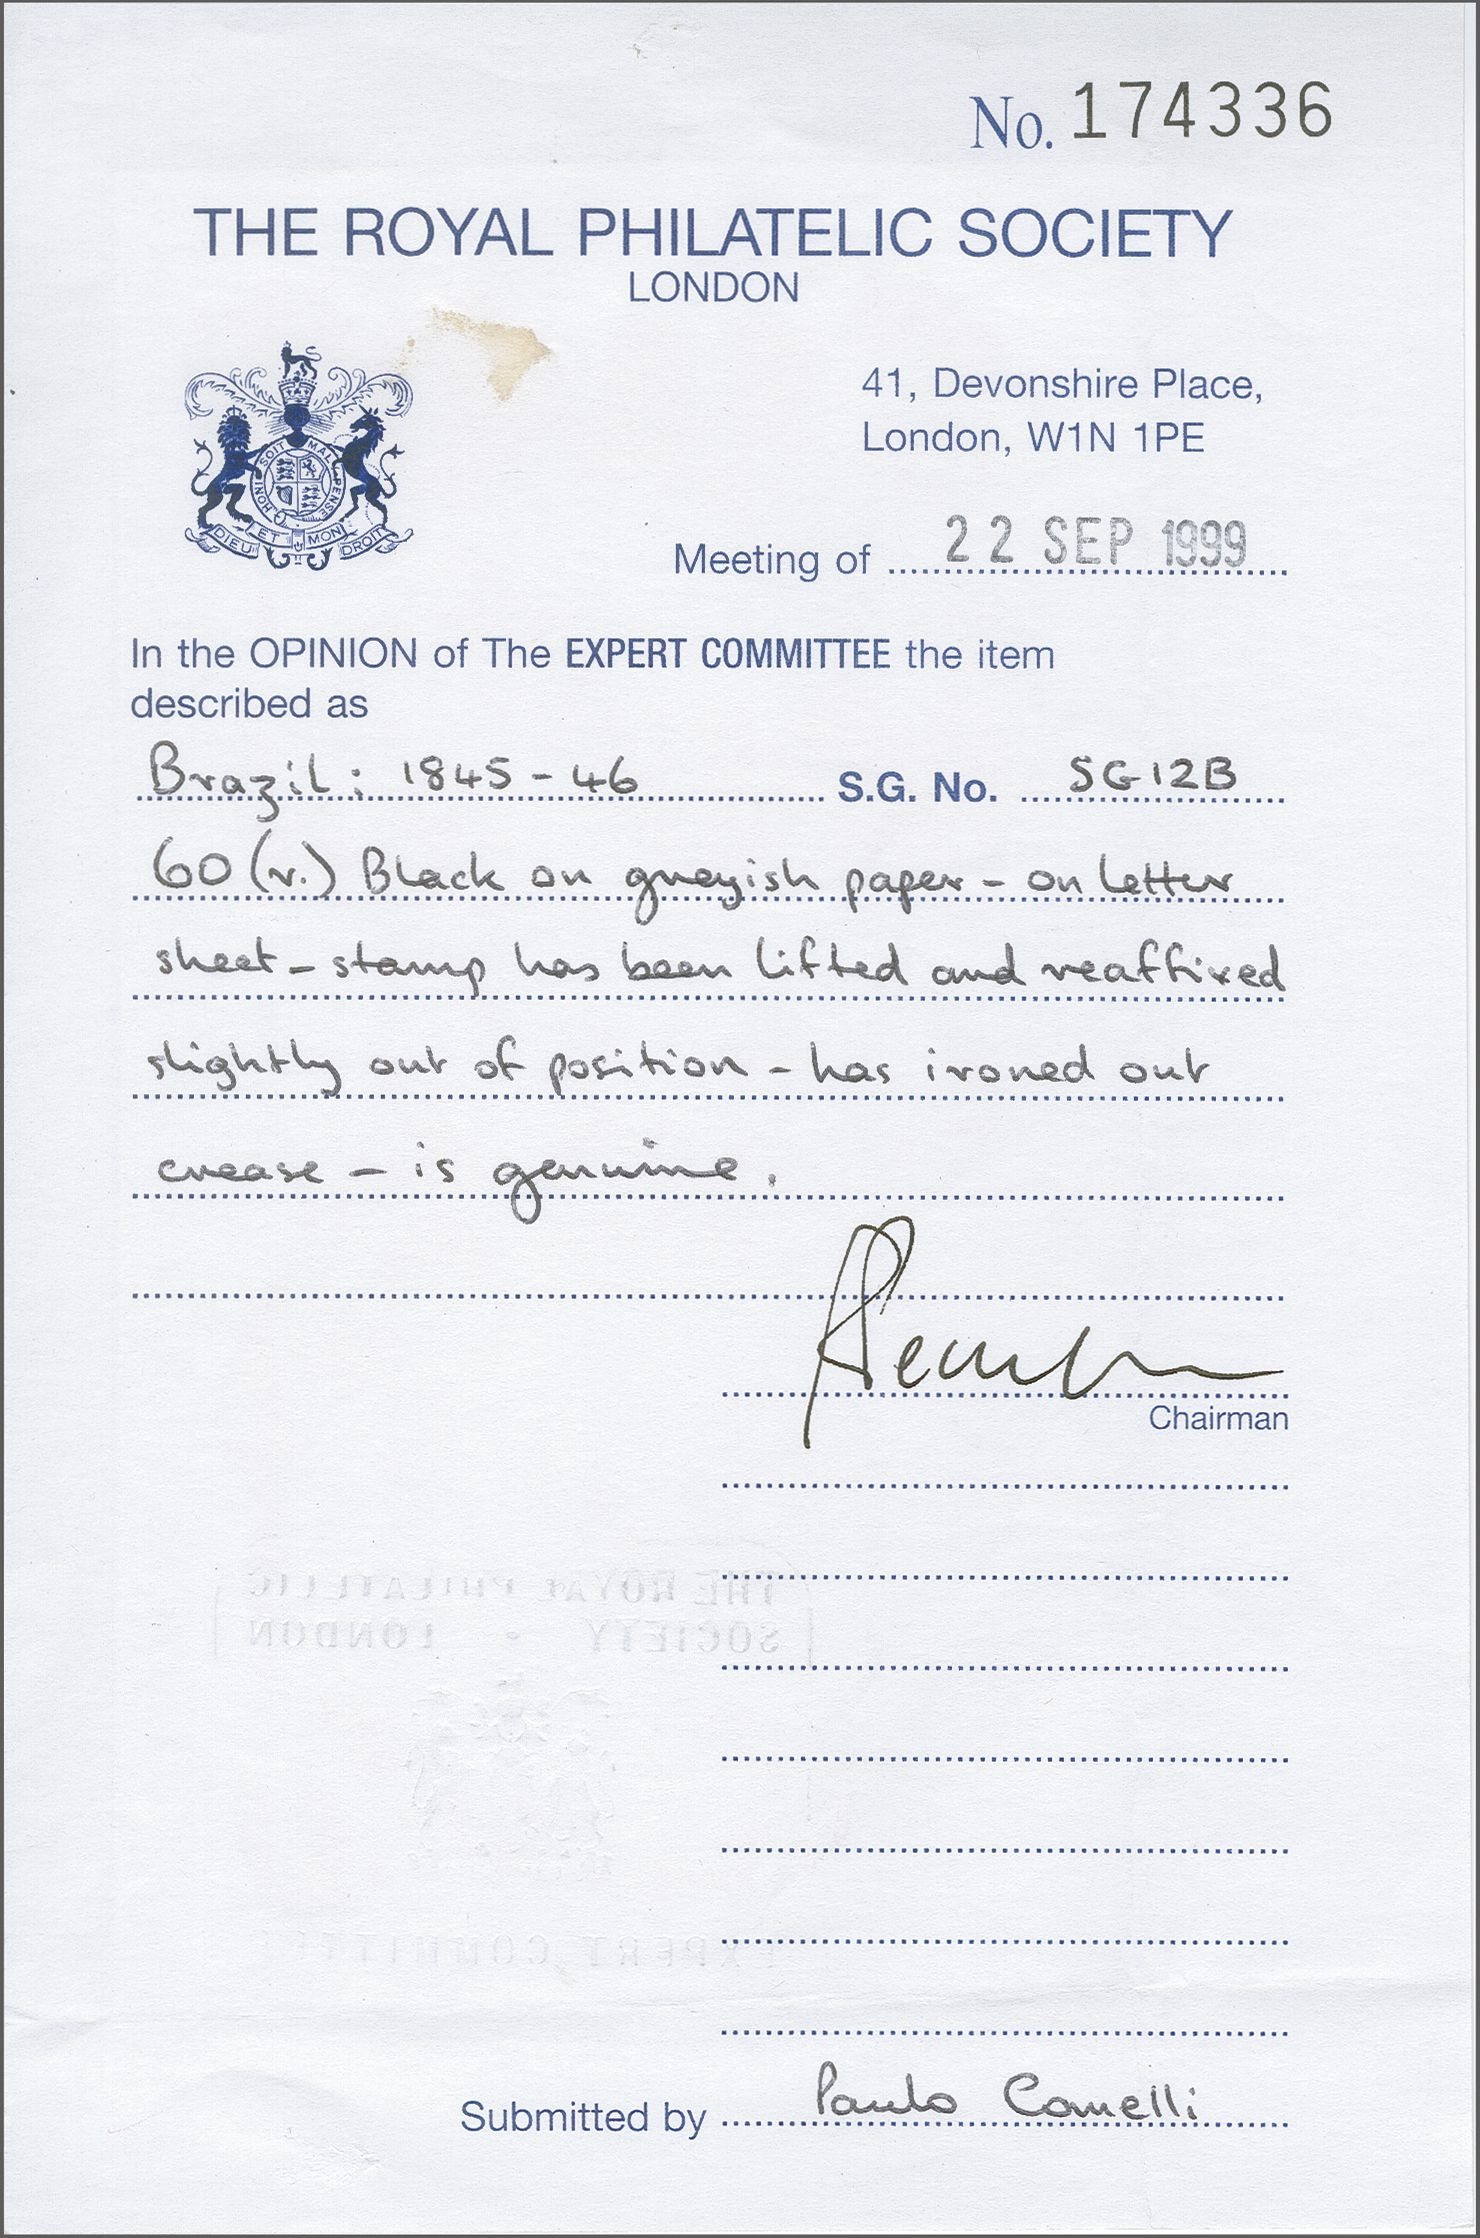 No. 174336
THE ROYAL PHILATELIC SOCIETY
LONDON
HONI SOIT MAL PENSE
DIEU ET MON DROIT
41, Devonshire Place,
London, W1N 1PE
Meeting of 22 SEP 1999
In the OPINION of The EXPERT COMMITTEE the item
described as
Brazil: 1845-46 S.G. No. SG12B
60 (r.) Black on greyish paper - on letter
sheet - stamp has been lifted and reaffixed
slightly out of position - has ironed out
crease - is genuine.
Chairman
THE ROYAL PHILATELIC
SOCIETY - LONDON
EXPERT COMMITTEE
Submitted by Paulo Comelli